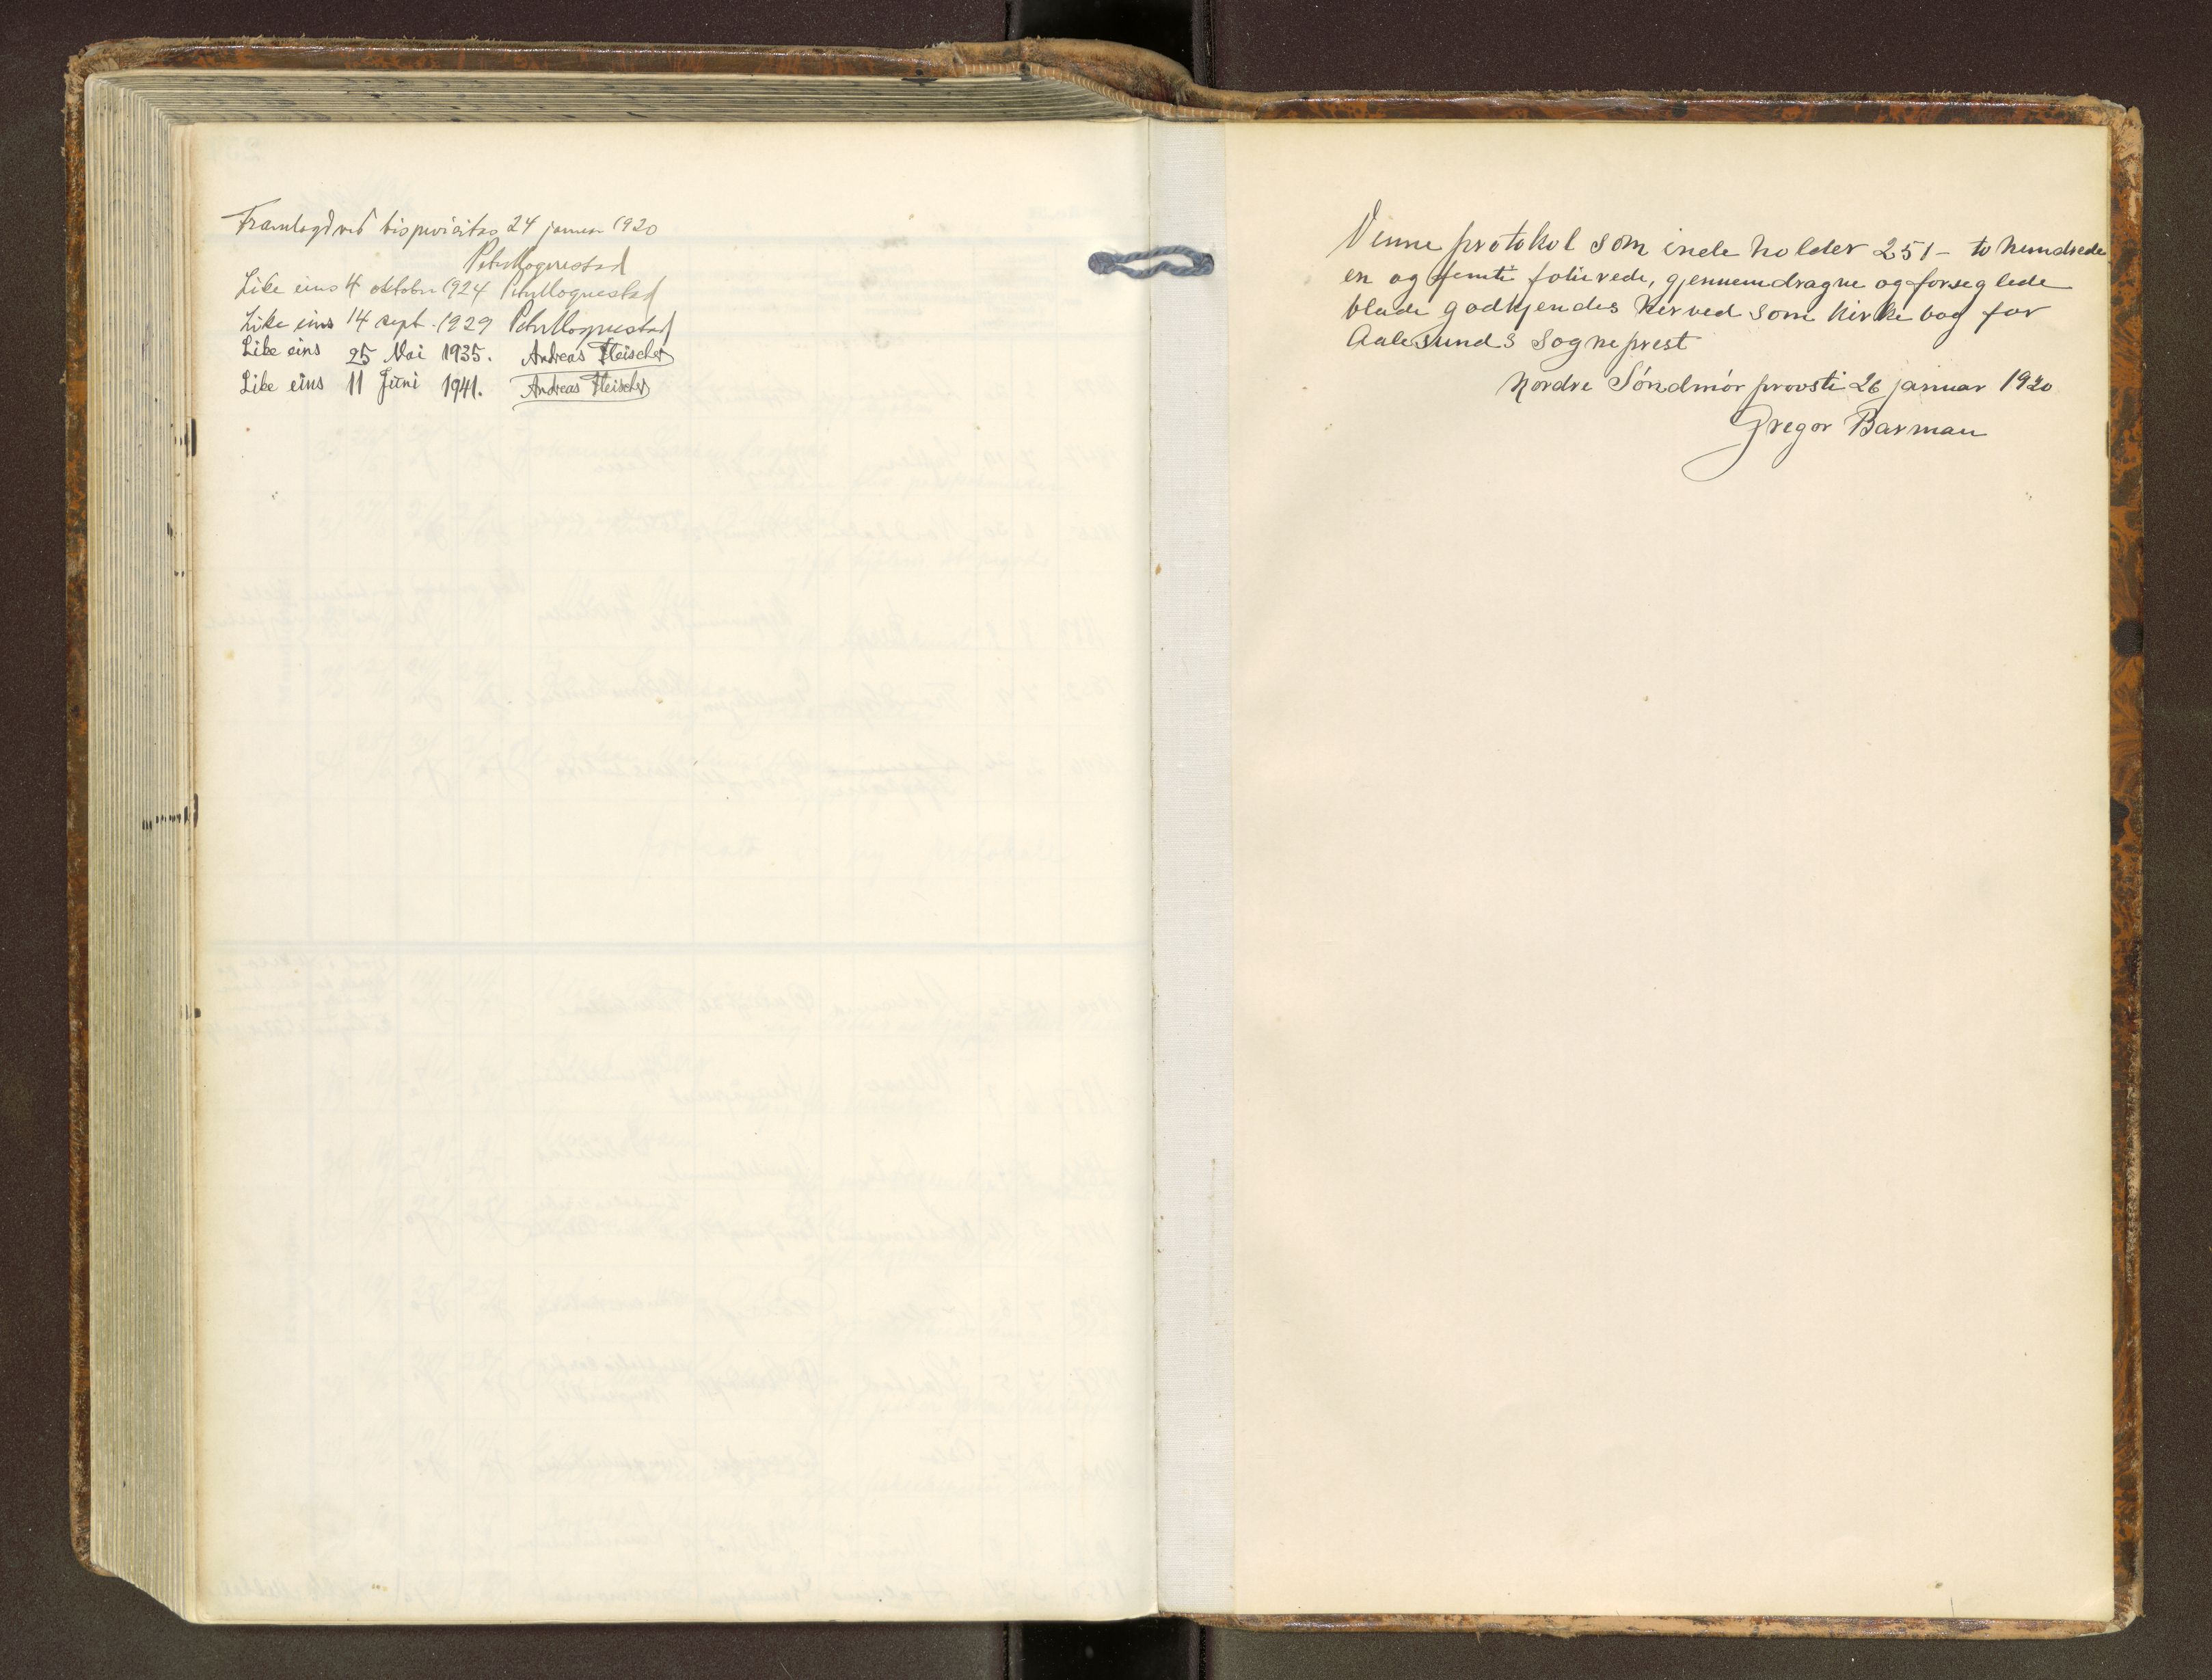 Framlagd ved bispvisitas 24 januar 1920
Peter Hognestad
Like eins 4 oktober 1924 Peter Hognestad
Like eins 14 sept. 1929 Peter Hognestad
Like eins 25 Mai 1935. Andreas Fleischer
Like eins 11 Juni 1941. Andreas Fleischer
Denne protokol som indeholder 251 - to hundrede
en og femti folierede, gjennemdragne og forseglede
blade godkjendes herved som kirkebog for
Aalesunds sogneprest
Nordre Söndmör provsti 26 januar 1920
Gregor Barman